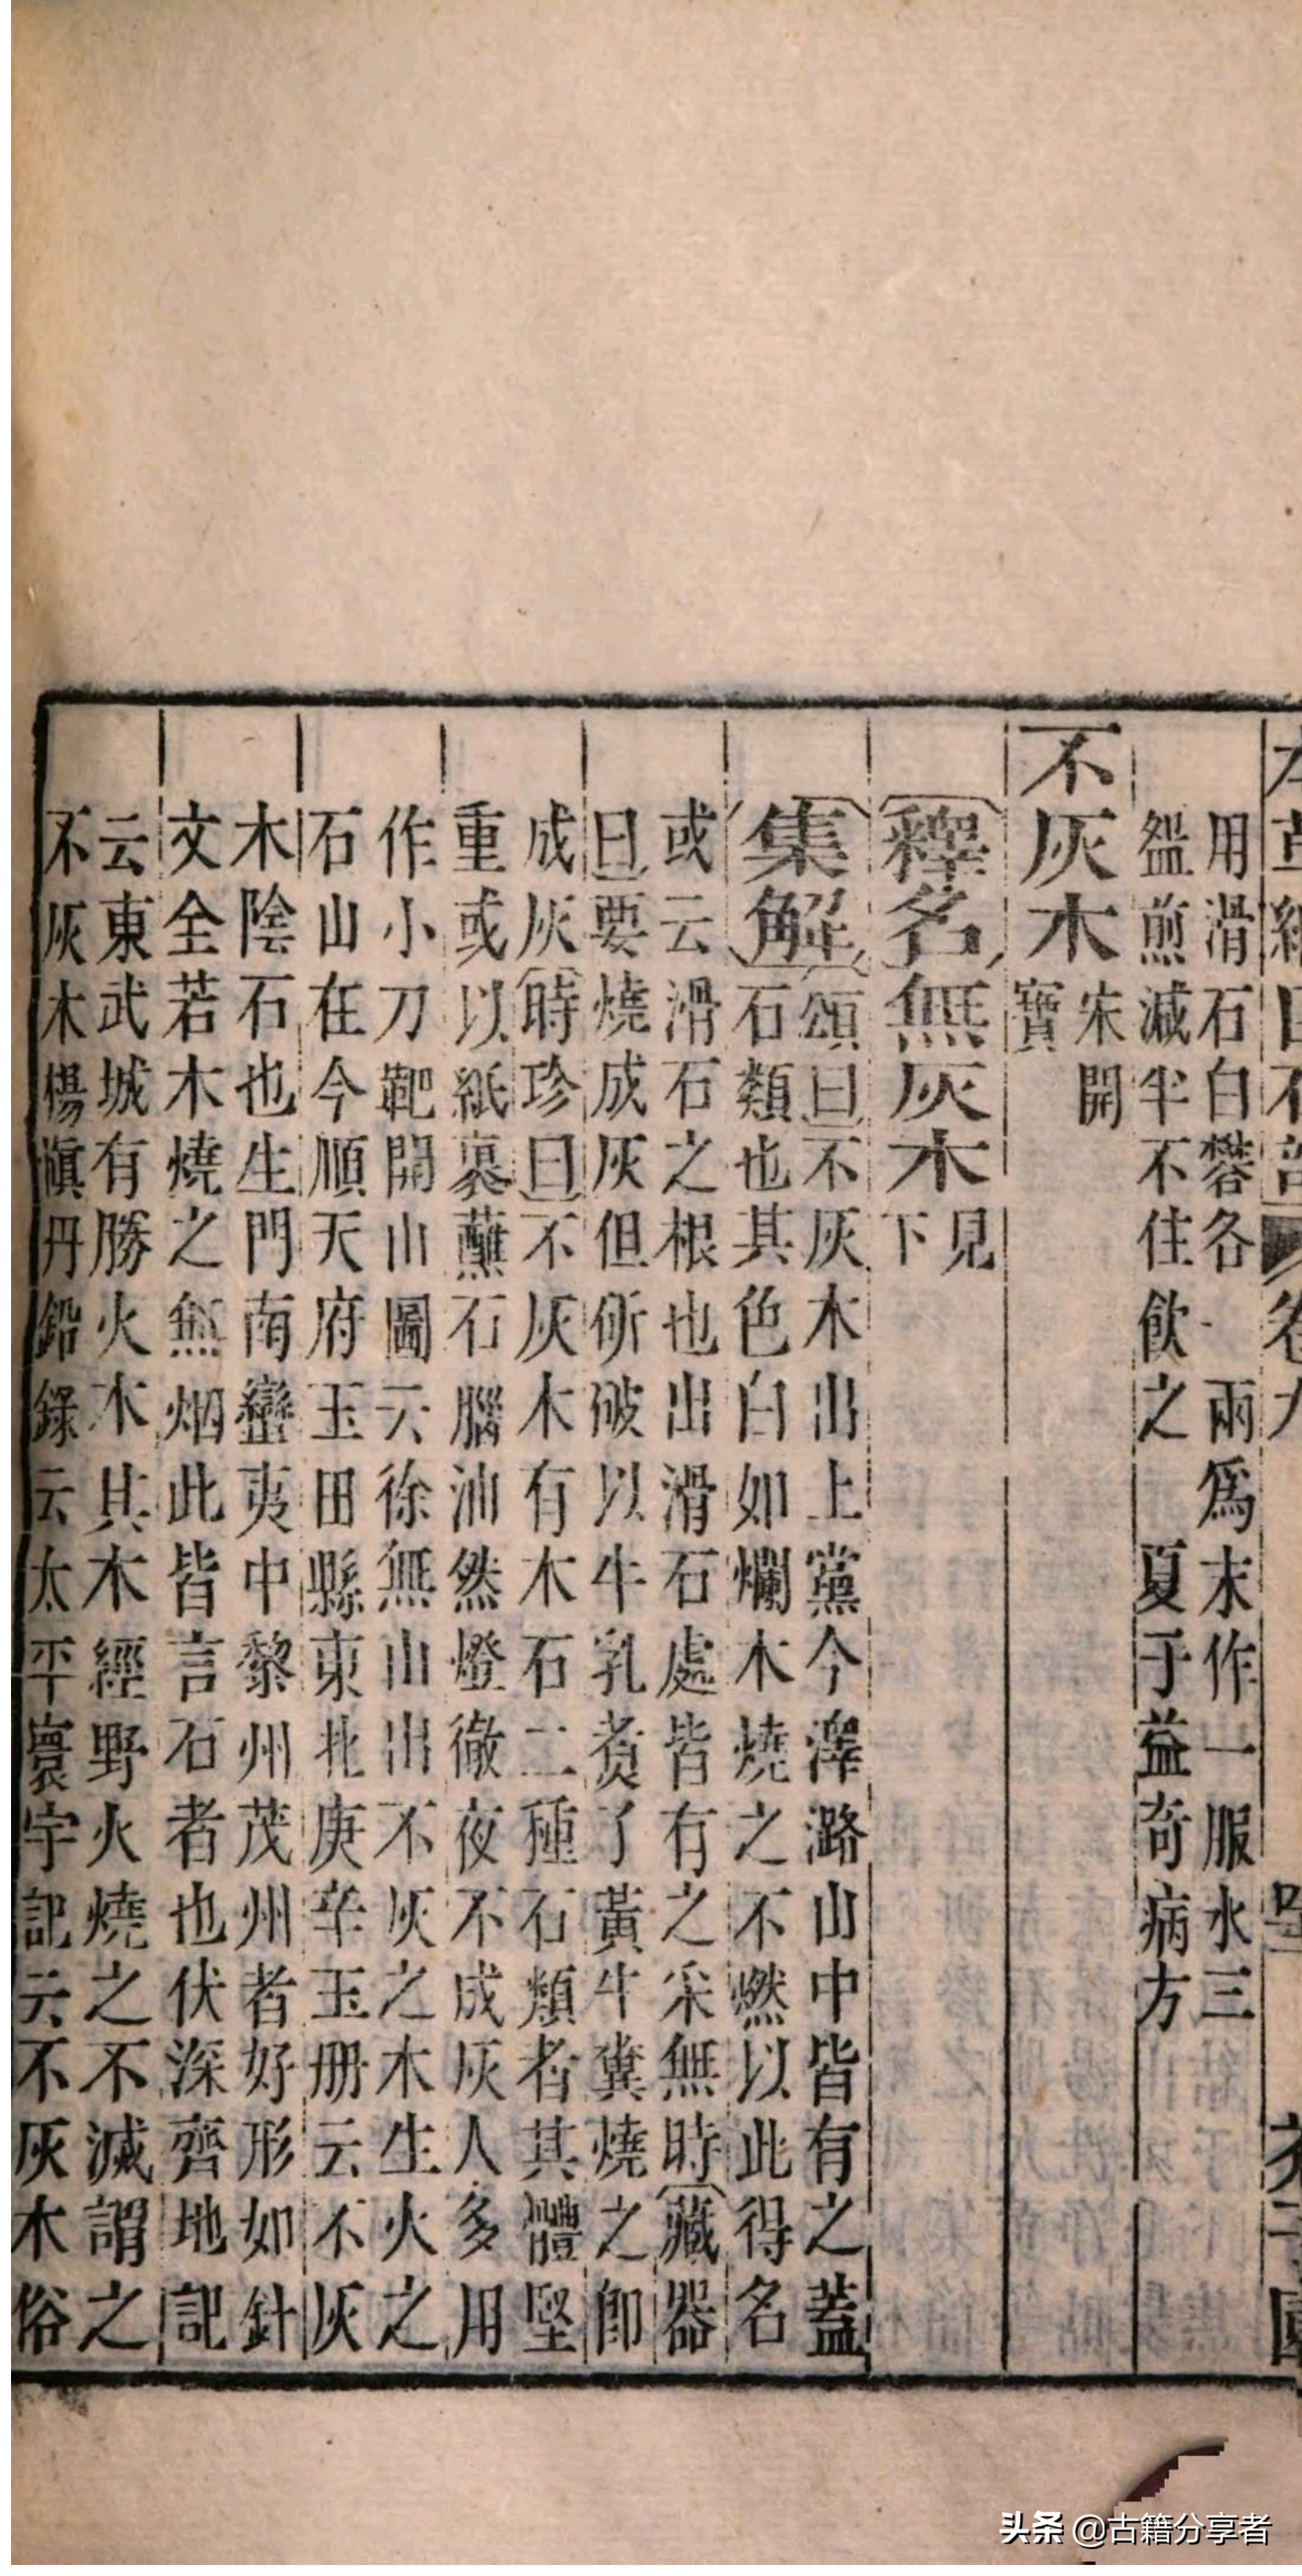 本草綱目石部 卷九
用滑石白礬各一兩爲末作一服水三
盌煎減半不住飲之　夏子益奇病方
不灰木宋開
寶
釋名無灰木見
下
集解頌曰不灰木出上黨今澤潞山中皆有之蓋
石類也其色白如爛木燒之不燃以此得名
或云滑石之根也出滑石處皆有之采無時藏器
曰要燒成灰但斫破以牛乳煑了黃牛糞燒之卽
成灰時珍曰不灰木有木石二種石類者其體堅
重或以紙裹蘸石腦油然燈徹夜不成灰人多用
作小刀靶開山圖云徐無山出不灰之木生火之
石山在今順天府玉田縣東北庚辛玉册云不灰
木陰石也生門南巒夷中黎州茂州者好形如針
文全若木燒之無烟此皆言石者也伏深齊地記
云東武城有勝火木其木經野火燒之不滅謂之
不灰木楊慎丹鉛錄云太平寰宇記云不灰木俗
头条 @古籍分享者